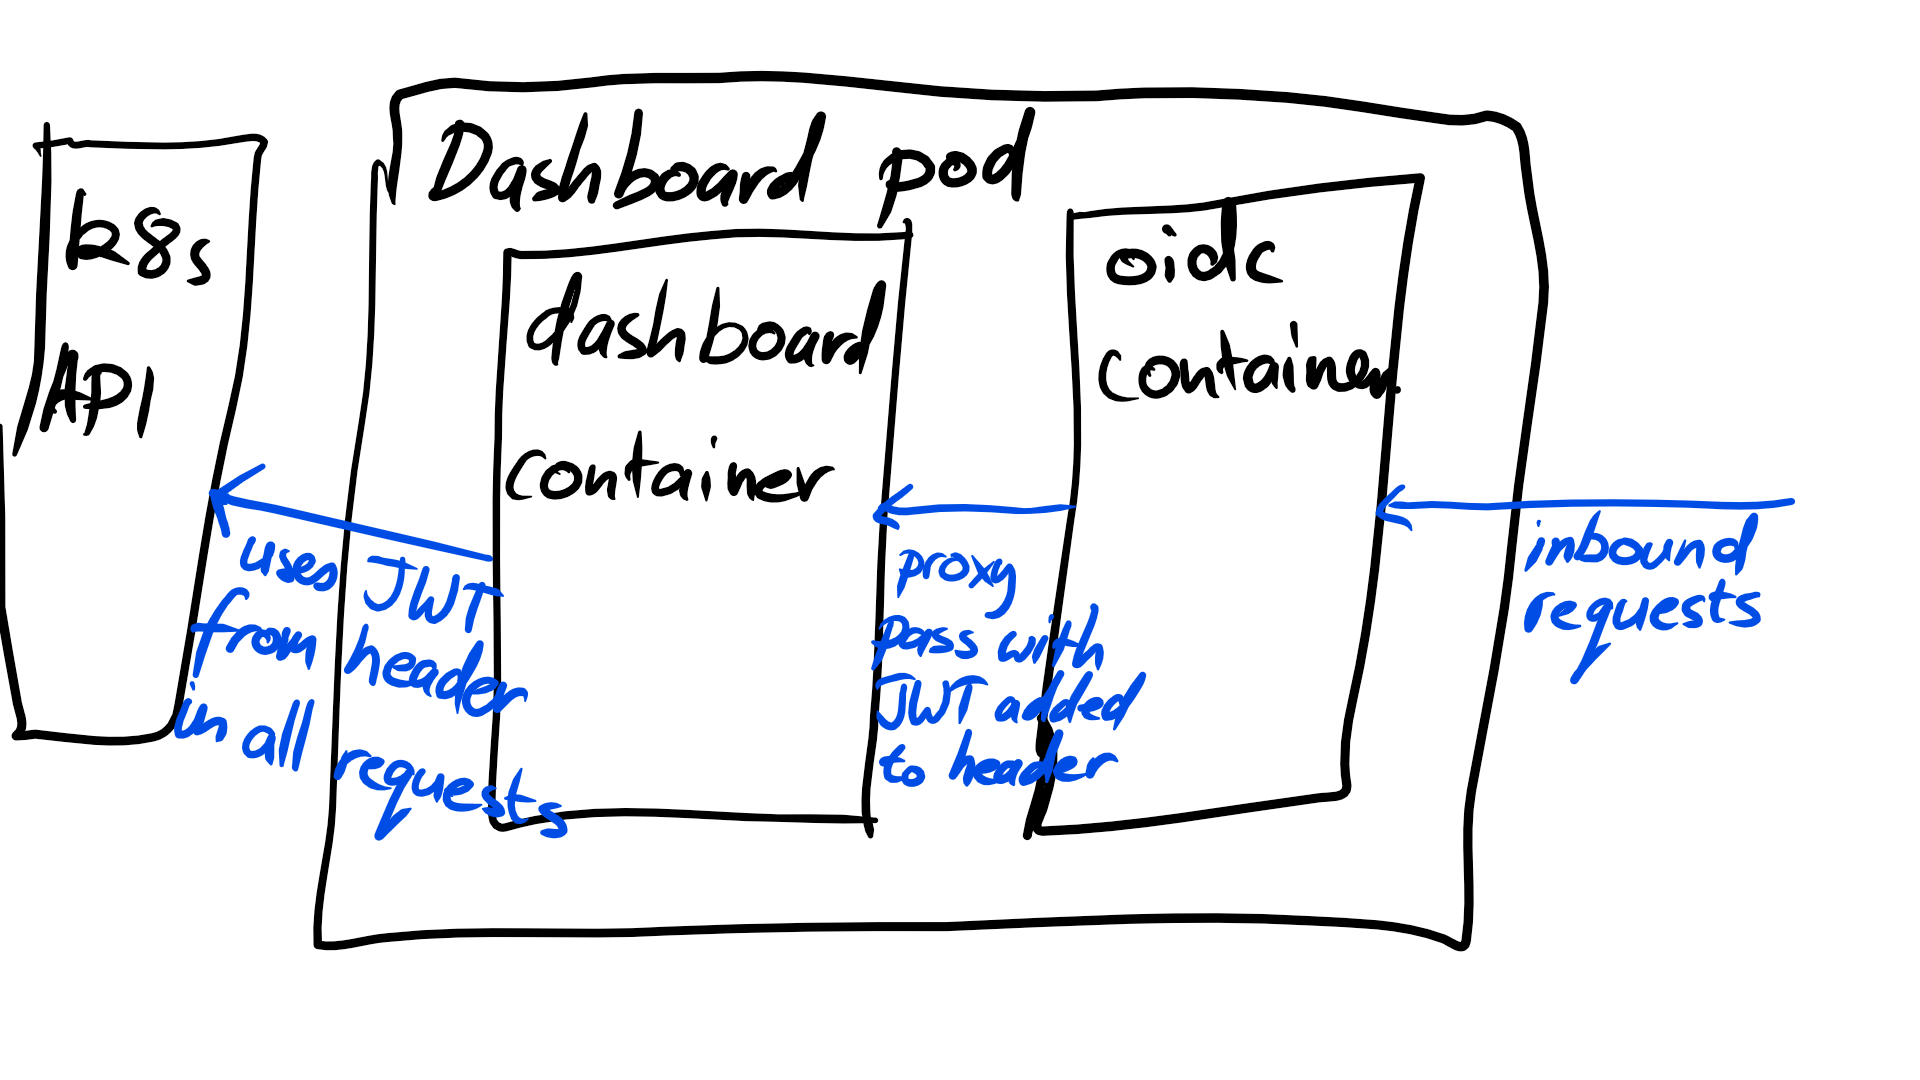 k8s
API
Dashboard pod
dashboard
container
oidc
container
uses JWT
from header
in all requests
proxy
pass with
JWT added
to header
inbound
requests